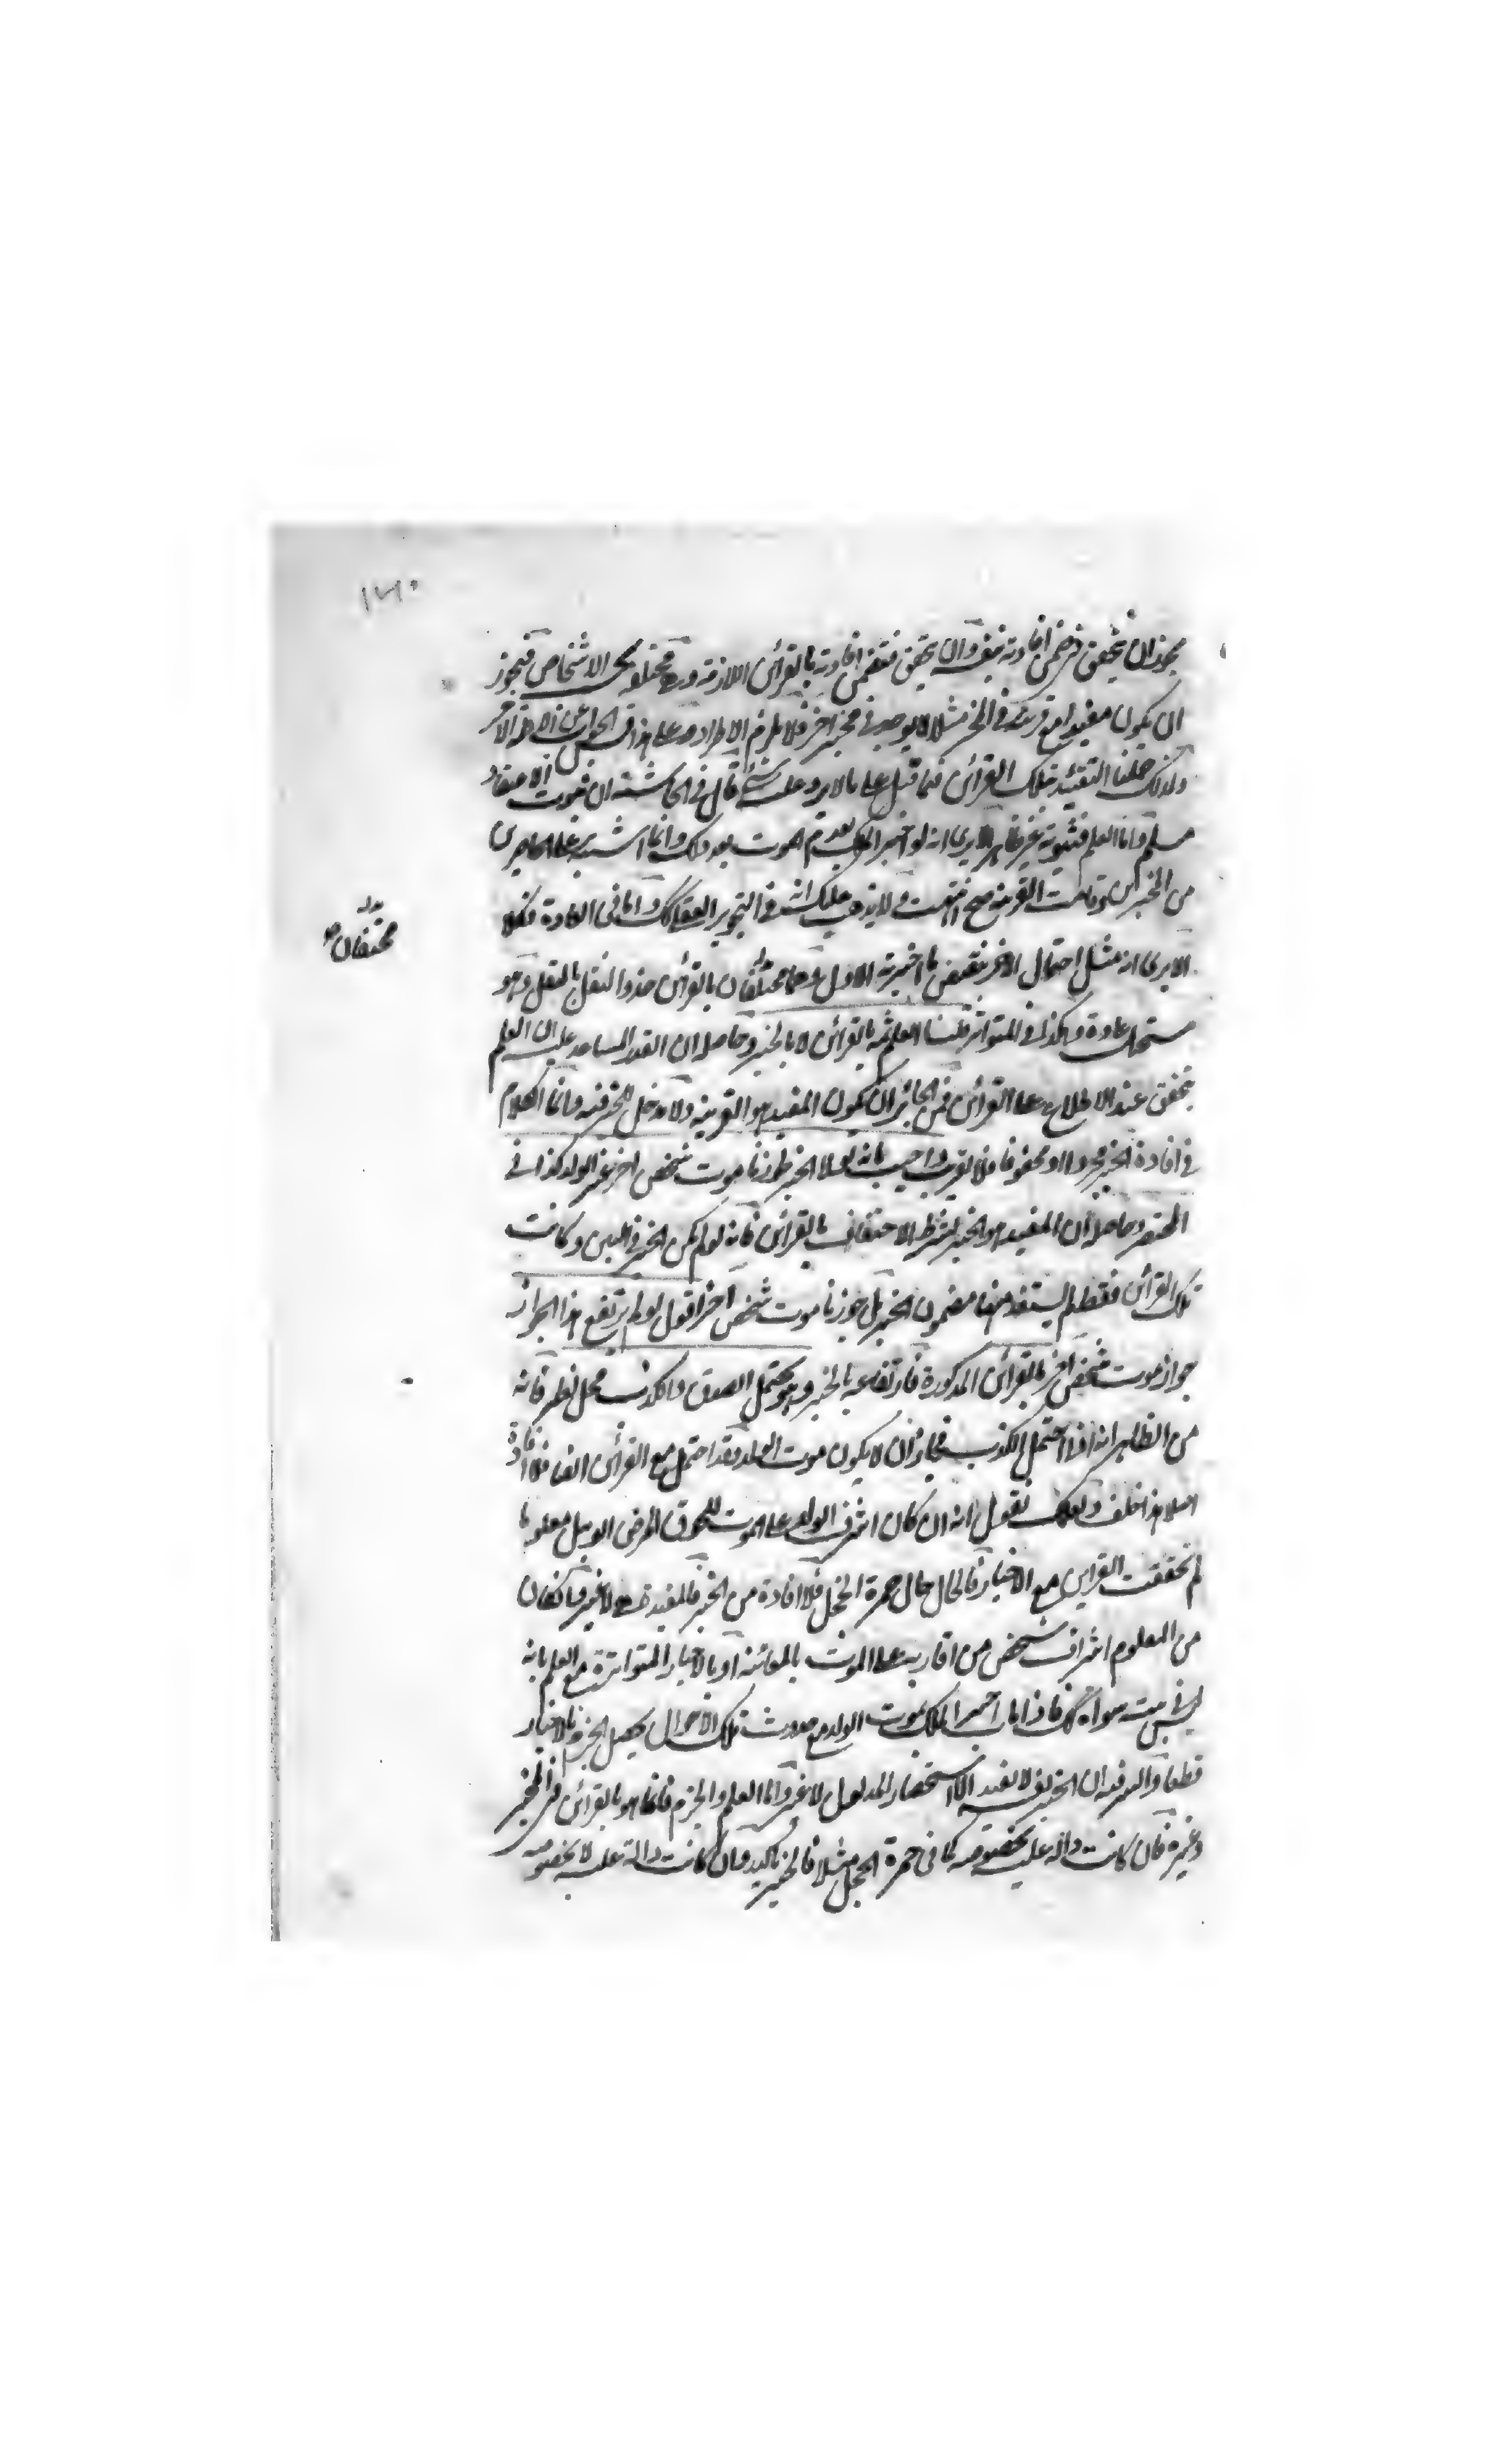 ١٢٠
يجوز ان يتحقق في ضمن افادته بنفسه وان يتحقق في ضمن افادته بالقرائن اللازمة وهي مختلفة بحسب الاشخاص فيجوز
ان يكون مفيدا مع قرينة في المخبر مثلا لا يوجد في مخبر اخر فلا يلزم الاطراد وعلى هذا قس الجواب عن
ولذلك حملنا التقييد بتلك القرائن فيما قبل على ما لا يرد عليه شيء قال في الحاشية ان ثبوت الاعتقاد
مسلم واما العلم فثبوته غير ظاهر الا يرى انه لو اخبر الملك بعدم الموت بعد ذلك وانما اشتبه على الحاضرين
من المخبر ان وقامت القرينة صح انتهت ولا يذهب عليك انه في التجويز العقلي كك واما في العادة فكلا
محتفان صح
الا يرى انه مثل احتمال الاخر بنقيض ما اخبر به الاول وهما محتفان بالقرائن حذو النعل بالنعل وهو
مستحيل عادة وهكذا في المتواتر قلنا العلم ثمه بالقرائن لا بالخبر وحاصله ان القدر المساعد عليه ان العلم
يتحقق عند الاطلاع على القرائن فمن الجائز ان يكون المفيد هو القرينة ولا مدخل للخبر فيه وانما الكلام
في افادة الخبر مجردا او محفوفا فلا تقريب واجيب بانه لولا الخبر لجوزنا موت شخص اخر غير الولد كذا في
المختصر وحاصله ان المفيد هو الخبر بشرط الاحتفاف بالقرائن فانه لو لم يكن الخبر في البين وكانت
تلك القرائن فقط لم يستفد منها مضمون الخبر بل جوزنا موت شخص اخر اقول لو لم يرتفع هذا الجواز
جواز موت شخص اخر بالقرائن المذكورة فارتفاعه بالخبر وهو يحتمل الصدق والكذب محل نظر فانه
من الظاهر انه اذا احتمل الكذب فجاز ان لا يكون موت الولد فقد احتمل مع القرائن ايضا فلا افادة
اصلا هذا خلف ولعلك تقول انه ان كان اشرف الولد على الموت للحوق المرض الوبيل معلوما
ثم تحققت القراين مع الاخبار فالحال حال حمرة الخجل فلا افادة من الخبر فالمفيد هي لا غير وان كان
من المعلوم اشراف شخص من اقاربه على الموت بالمعاينة او بالاخبار المتواترة مع العلم بانه
ليس في بيته سواه كك فاذا اخبر الملك بموت الولد مع حدوث تلك الاحوال يحصل الجزم بالاخبار
قطعا والسر فيه ان الخبر بنفسه لا يفيد الا استحضار المدلول لا غير واما العلم والجزم فانما هو بالقرائن في المخبر
وغيره فان كانت دالة عليه بخصوصه كما في حمرة الخجل مثلا فالخبر تاكيد وان كانت دالة عليه لا بخصوصه